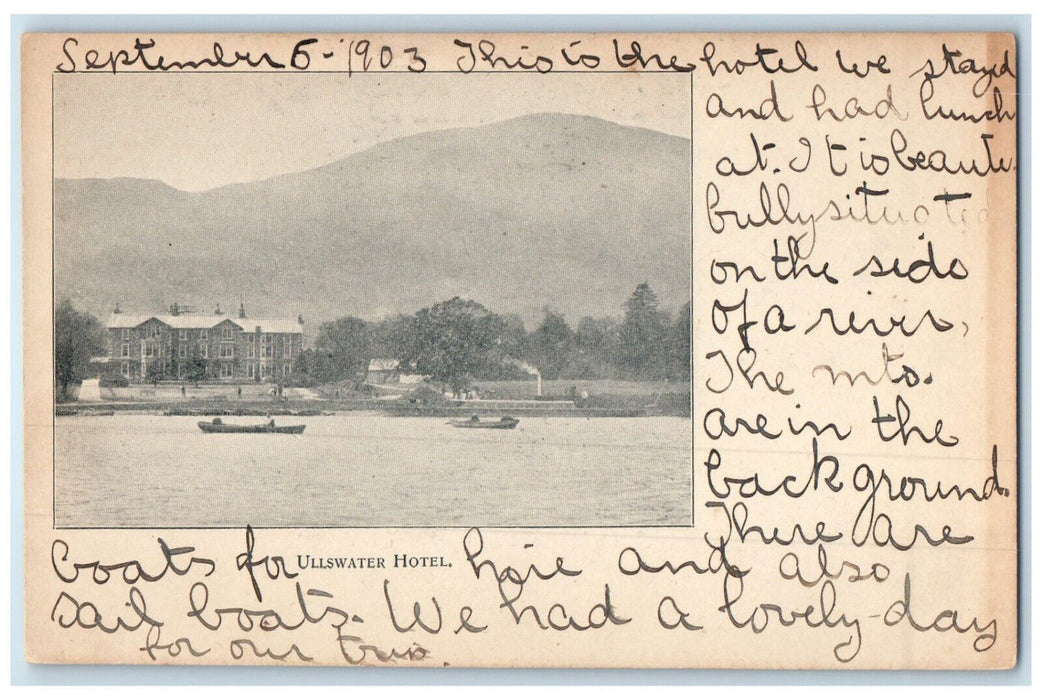 September 5 - 1903 This is the hotel we stayed
and had lunch
at. It is beauti-
fully situated
on the side
of a river,
The mts.
are in the
background.
There are
boats for ULLSWATER HOTEL. hire and also
sail boats. We had a lovely day
for our trip.